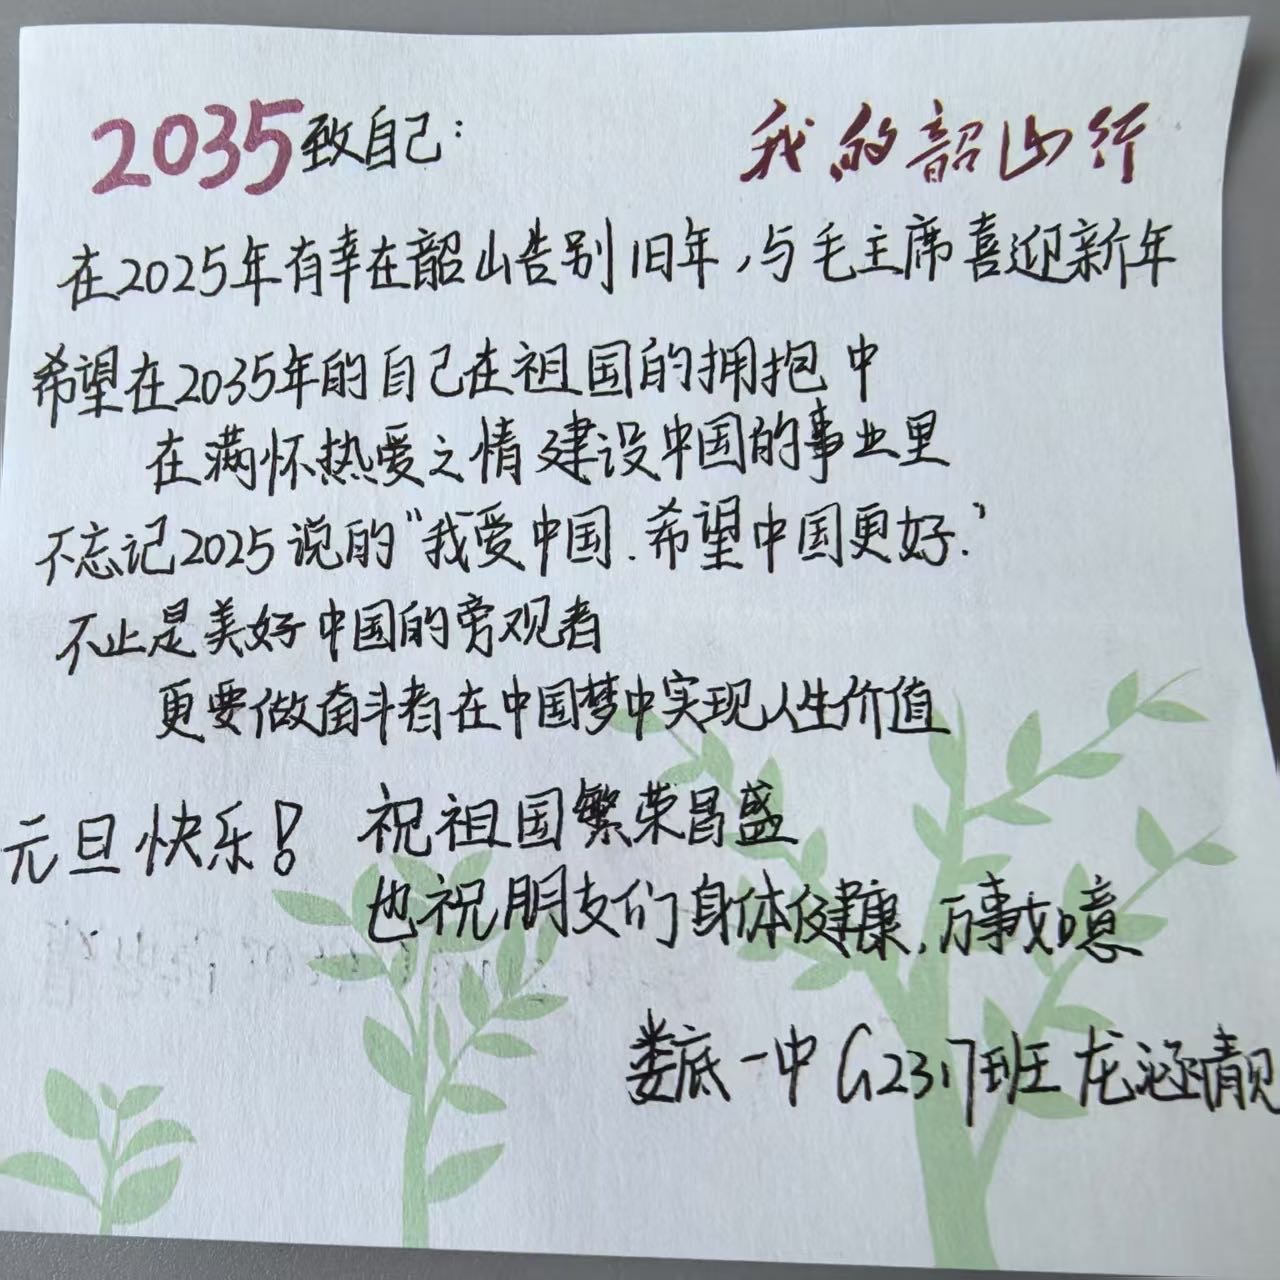 2035致自己： 我的韶山行
在2025年有幸在韶山告别旧年,与毛主席喜迎新年
希望在2035年的自己在祖国的拥抱中
在满怀热爱之情建设中国的事业里
不忘记2025说的“我爱中国.希望中国更好.”
不止是美好中国的旁观者
更要做奋斗者在中国梦中实现人生价值
元旦快乐！ 祝祖国繁荣昌盛
也祝朋友们身体健康,万事如意
娄底一中G2317班龙涵靓